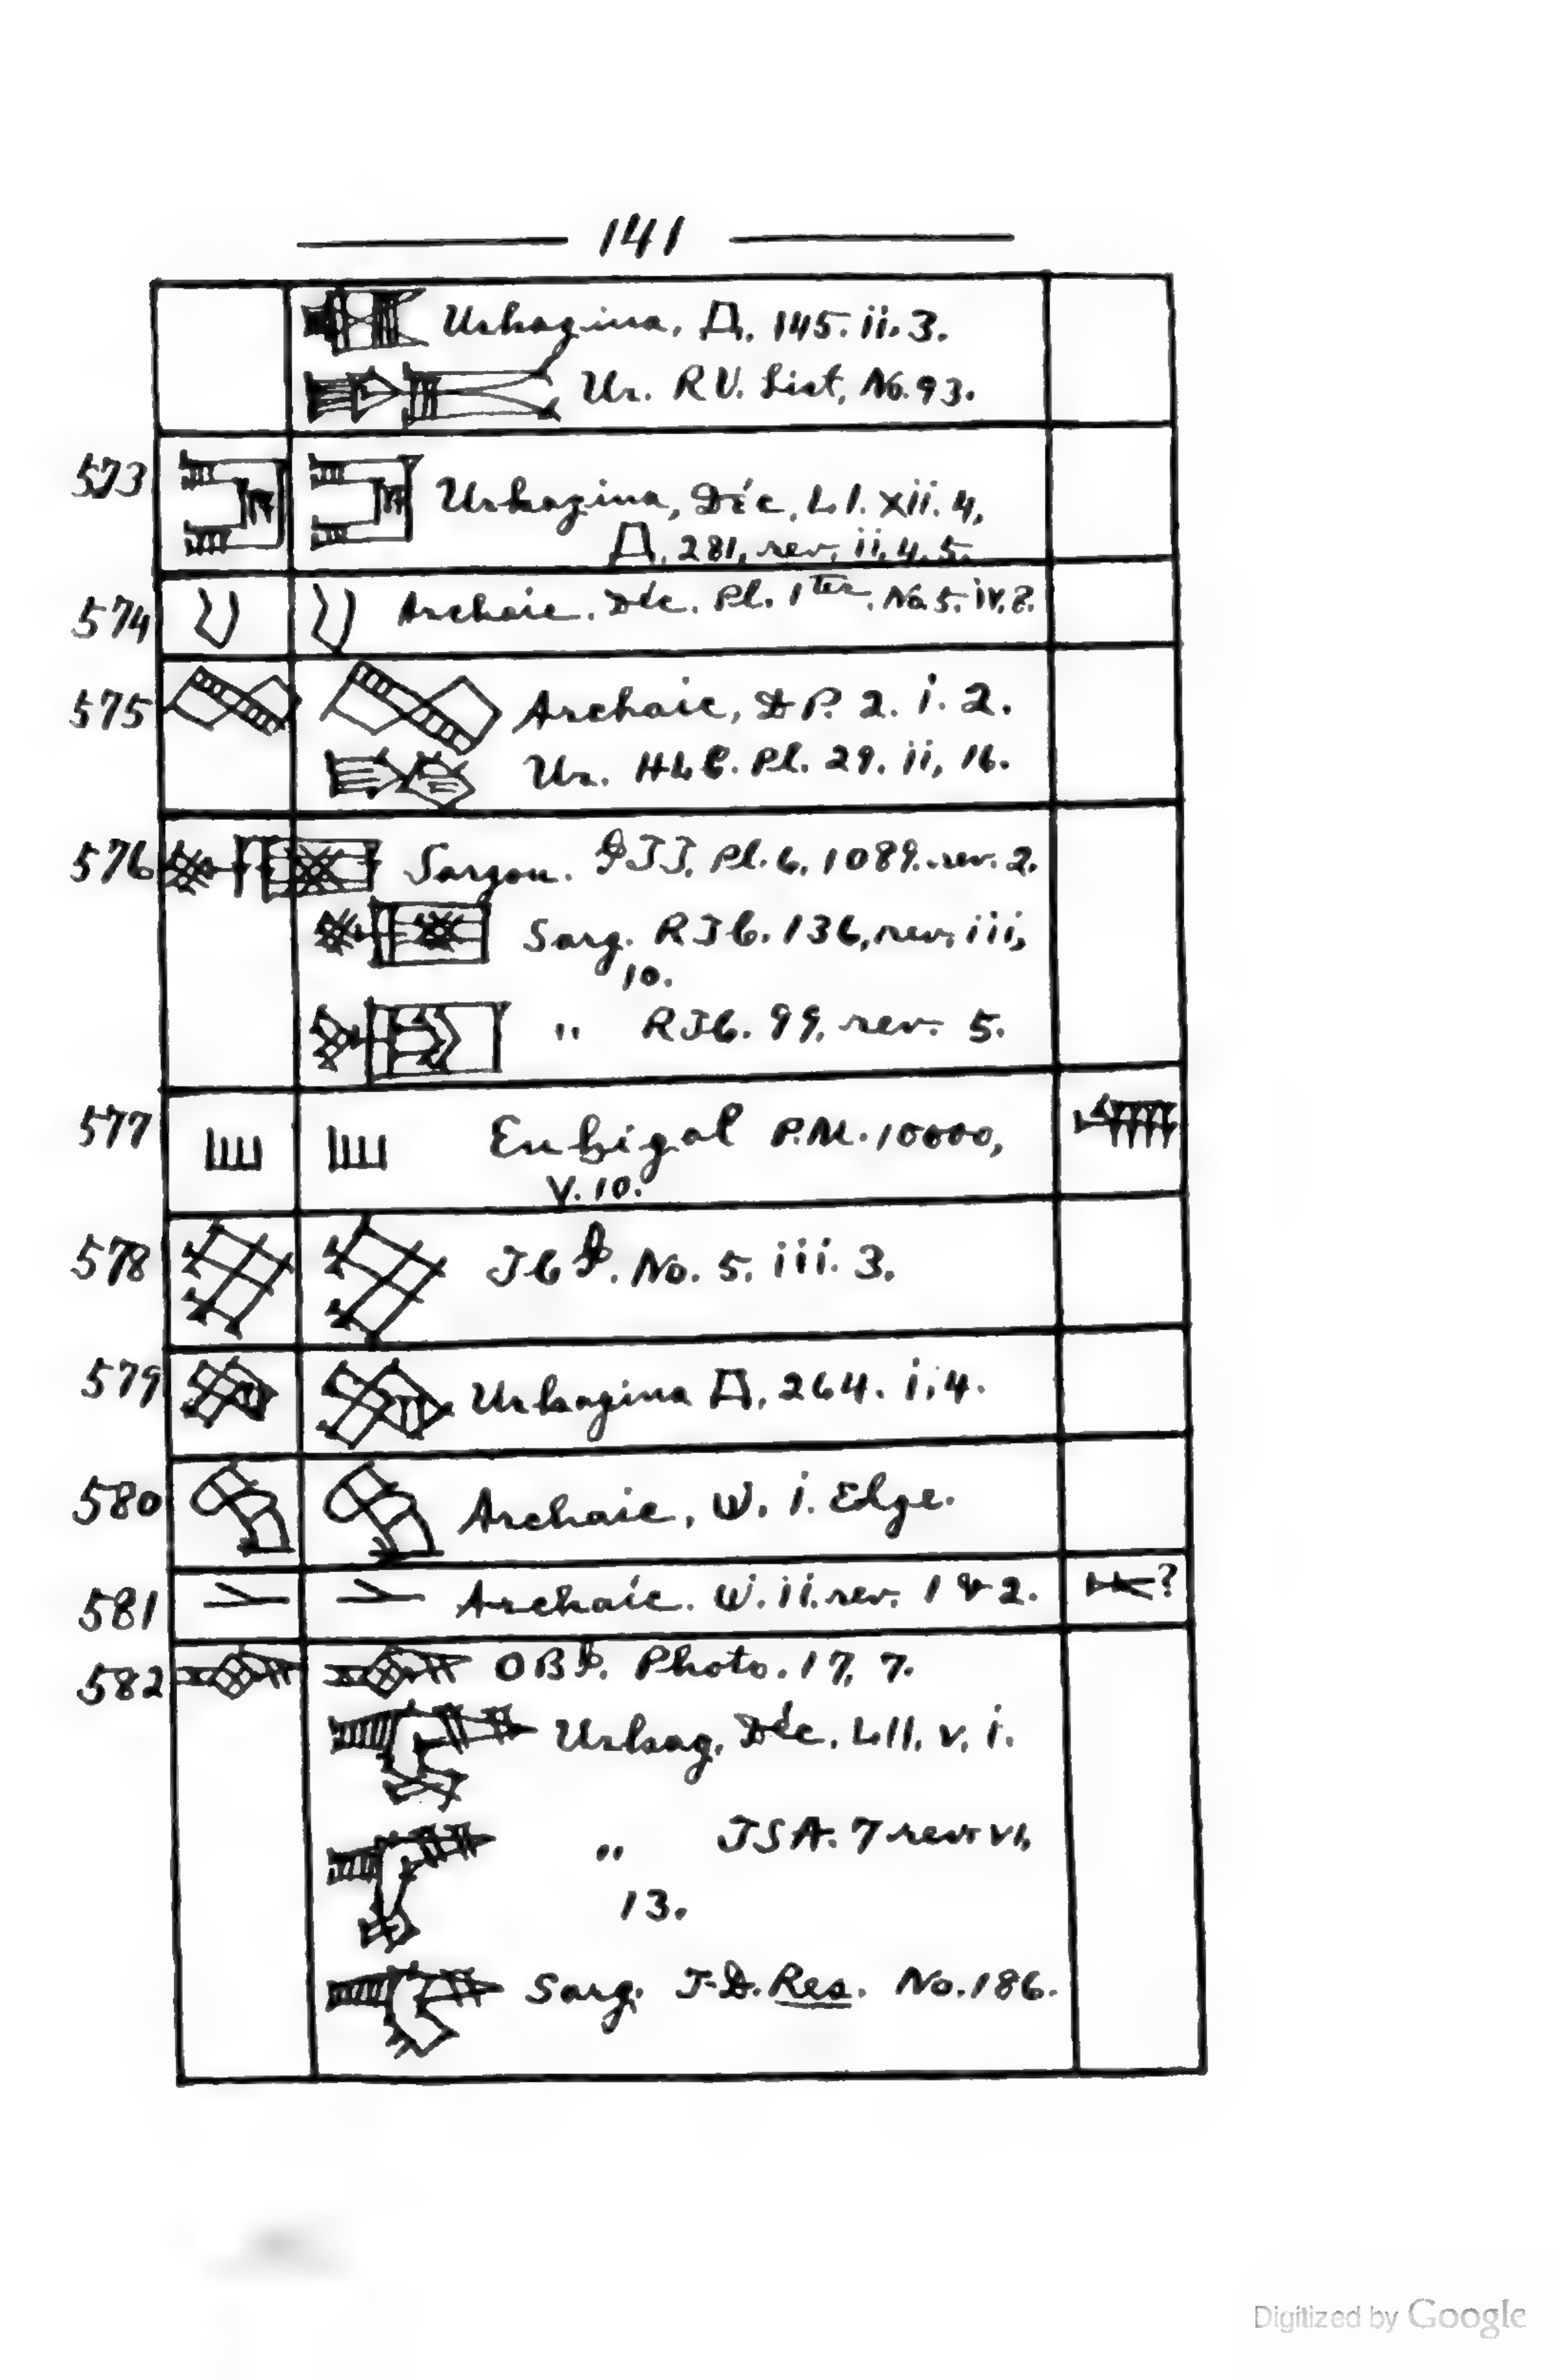 141
Urkagina, Д. 145. ii. 3.
Ur. R V. List, No. 93.
573 Urkagina, Déc. LI. xii. 4,
Д. 281, rev. ii, 4. 5.
574 Archaic. Déc. Pl. 1ter. No. 5. iv. 2.
575 Archaic, DP. 2. i. 2.
Ur. HLC. Pl. 29. ii, 16.
576 Sargon. Pl. 6, 1089. rev. 2.
Sarg. RTC. 136, rev. iii,
10.
" RTC. 99, rev. 5.
577 Enbigal P.M. 10000,
V. 10.
578 No. 5. iii. 3.
579 Urkagina Д. 264. i. 4.
580 Archaic, W. i. Edge.
581 Archaic. W. ii. rev. 1 & 2. ?
582 Photo. 17, 7.
Urkag. Déc. LII. v. i.
" TSA. 7 rev. vi,
13.
Sarg. T-D. Res. No. 186.
Digitized by Google